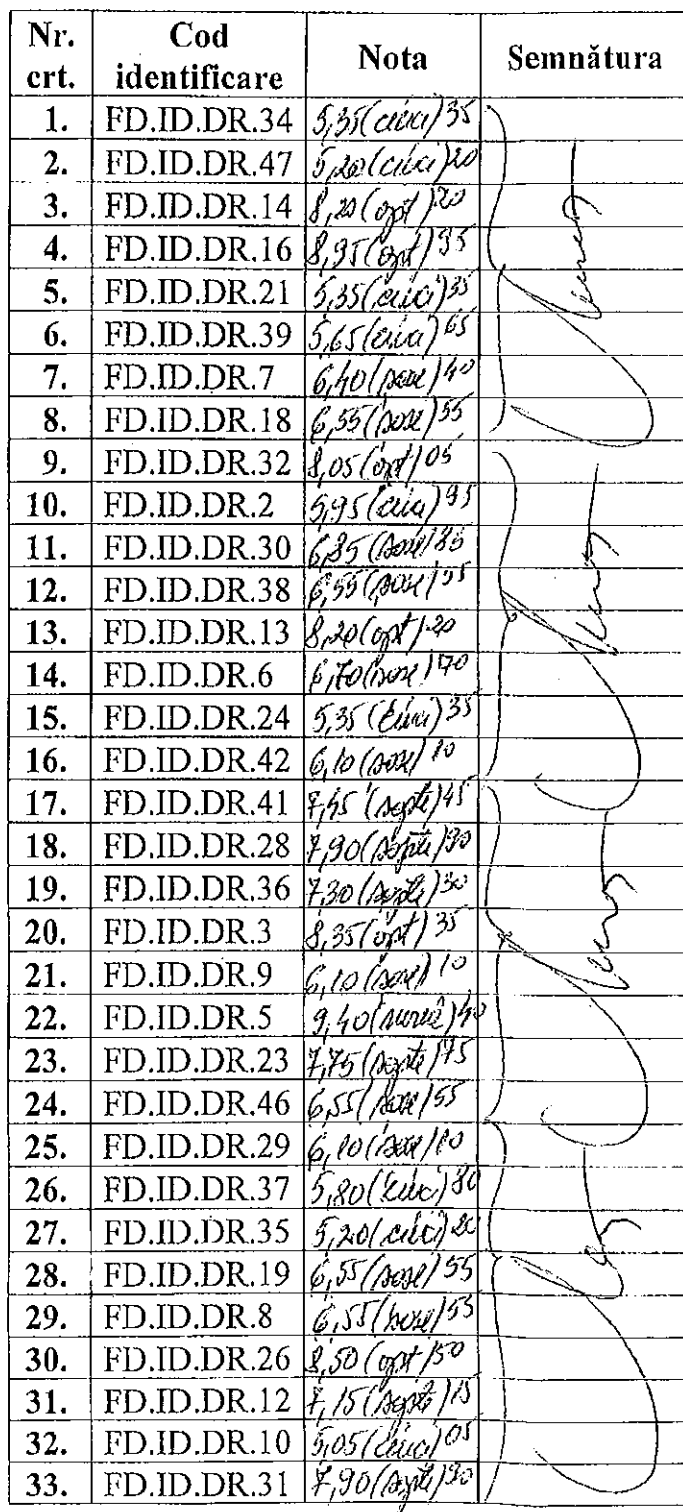 Nr. crt. Cod identificare Nota Semnătura
1. FD.ID.DR.34 5,35 (cinci) 35
2. FD.ID.DR.47 5,20 (cinci) 20
3. FD.ID.DR.14 8,20 (opt) 20
4. FD.ID.DR.16 8,95 (opt) 95
5. FD.ID.DR.21 5,35 (cinci) 35
6. FD.ID.DR.39 5,65 (cinci) 65
7. FD.ID.DR.7 6,40 (șase) 40
8. FD.ID.DR.18 6,55 (șase) 55
9. FD.ID.DR.32 8,05 (opt) 05
10. FD.ID.DR.2 5,95 (cinci) 95
11. FD.ID.DR.30 6,85 (șase) 85
12. FD.ID.DR.38 6,55 (șase) 55
13. FD.ID.DR.13 8,20 (opt) 20
14. FD.ID.DR.6 6,70 (șase) 70
15. FD.ID.DR.24 5,35 (cinci) 35
16. FD.ID.DR.42 6,10 (șase) 10
17. FD.ID.DR.41 7,45 (șapte) 45
18. FD.ID.DR.28 7,90 (șapte) 90
19. FD.ID.DR.36 7,30 (șapte) 30
20. FD.ID.DR.3 8,35 (opt) 35
21. FD.ID.DR.9 6,10 (șase) 10
22. FD.ID.DR.5 9,40 (nouă) 40
23. FD.ID.DR.23 7,75 (șapte) 75
24. FD.ID.DR.46 6,55 (șase) 55
25. FD.ID.DR.29 6,10 (șase) 10
26. FD.ID.DR.37 5,80 (cinci) 80
27. FD.ID.DR.35 5,20 (cinci) 20
28. FD.ID.DR.19 6,55 (șase) 55
29. FD.ID.DR.8 6,55 (șase) 55
30. FD.ID.DR.26 8,50 (opt) 50
31. FD.ID.DR.12 7,15 (șapte) 15
32. FD.ID.DR.10 5,05 (cinci) 05
33. FD.ID.DR.31 7,90 (șapte) 90